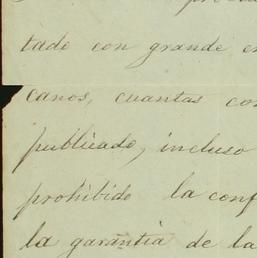 tado con grande en
canos, cuantas con
publicado, incluso
prohibido la conf
la garantia de la